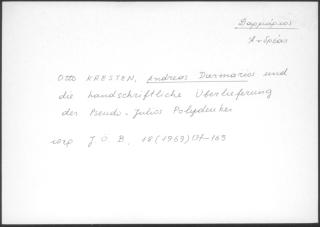 Δαρμάριος
Ἀνδρέας
Otto KRESTEN, Andreas Darmarios und
die handschriftliche Überlieferung
des Pseudo-Julios Polydeukes
J. Ö. B. 18 (1969) 137-165